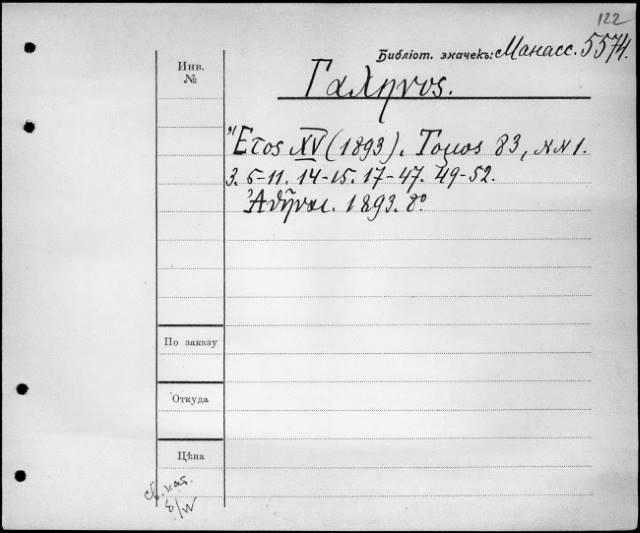 122
Библіот. значекъ: Манасс. 5574.
Инв.
№
Γαληνος.
Ἔτος XV (1893). Τομος 83, NN 1.
3. 5-11. 14-15. 17-47. 49-52.
Ἀθῆναι. 1893. 8º
По заказу
Откуда
Цѣна
кат.